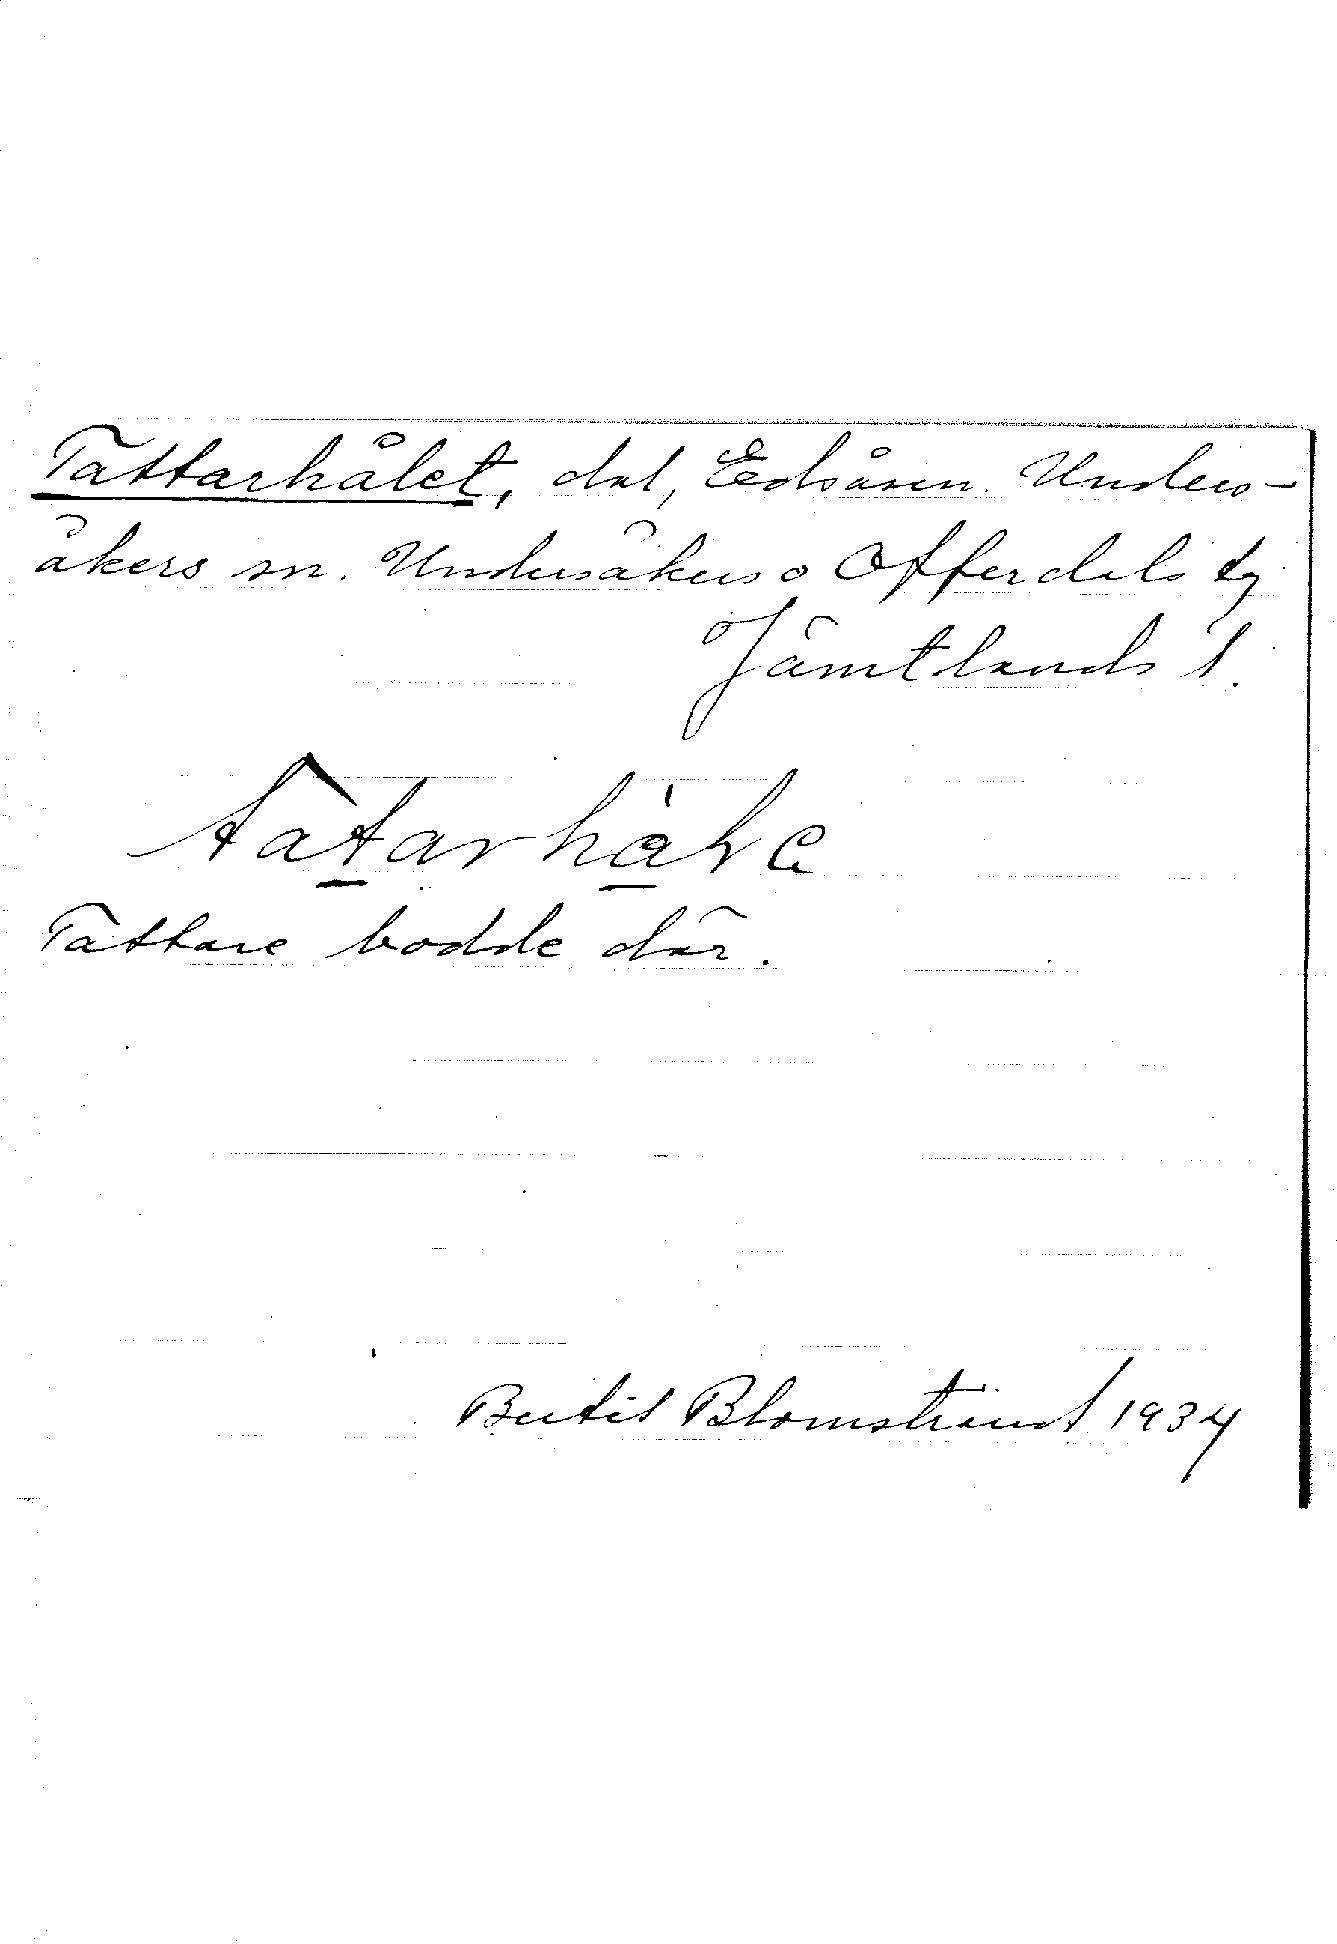 Tattarhålet, dal, Edsåsen. Unders-
åkers sn. Undersåkers o Offerdals tg
Jämtlands l.
Tattare bodde där.
Bertil Blomstrand 1934